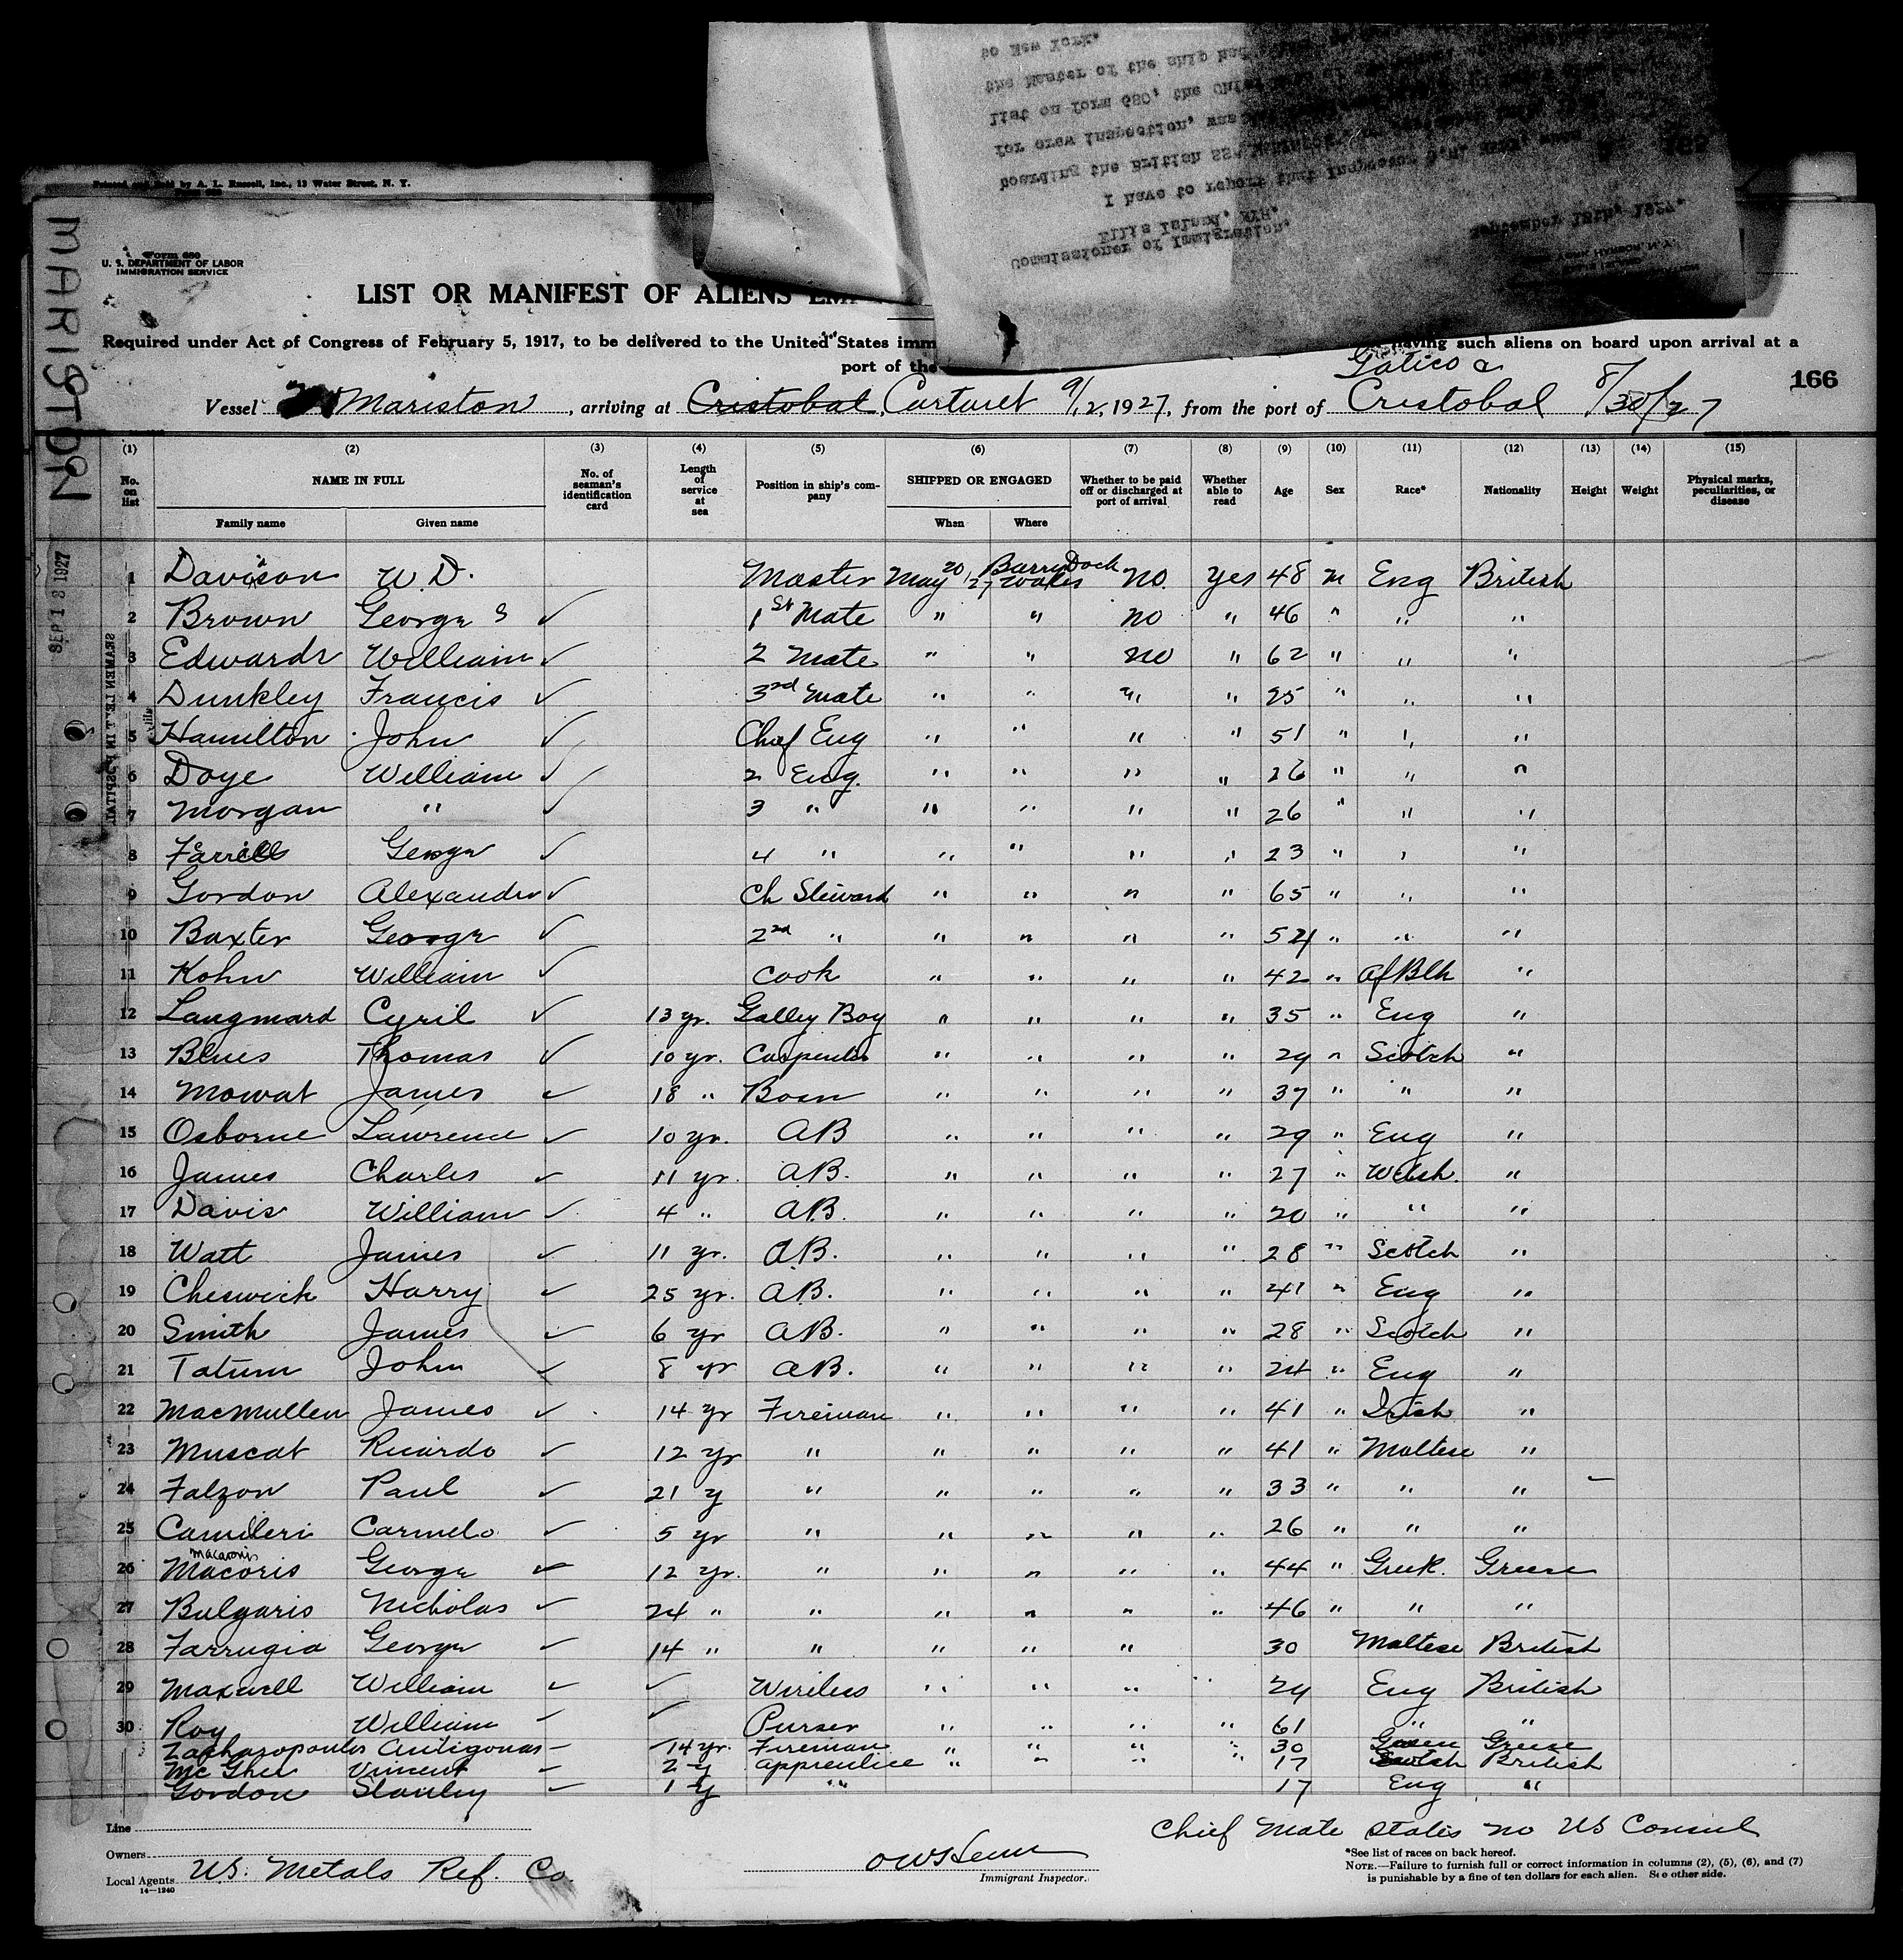 to New York.
the Master of the ship had
list on form 680, the Chief
for crew inspection, was
boarding the British SS.
I have to report that Inspector
Ellis Island, N.Y.H.
Commissioner of Immigration,
September 15th, 1927.
Printed and Sold by A. L. Russell, Inc., 12 Water Street, N. Y.
MARISTON
Form 680
U. S. DEPARTMENT OF LABOR
IMMIGRATION SERVICE
LIST OR MANIFEST OF ALIENS
Required under Act of Congress of February 5, 1917, to be delivered to the United States having such aliens on board upon arrival at a
port of the
166
Gatico &
Vessel Mariston, arriving at Cristobal, Cartaret 9/12, 1927, from the port of Cristobal 8/30/27
(1) (2) (3) (4) (5) (6) (7) (8) (9) (10) (11) (12) (13) (14) (15)
No. on list NAME IN FULL No. of seaman's identification card Length of service at sea Position in ship's company SHIPPED OR ENGAGED Whether to be paid off or discharged at port of arrival Whether able to read Age Sex Race* Nationality Height Weight Physical marks, peculiarities, or disease
Family name Given name When Where
SEP 13 1927
1 Davison W.D. Master May 20/27 Barry Dock Wales no. Yes 48 m Eng British
2 Brown George S ✓ 1st Mate " " no " 46 " " "
3 Edwards William ✓ 2 Mate " " no " 62 " " "
4 Dunkley Francis ✓ 3rd Mate " " " " 25 " " "
5 Hamilton John ✓ Chief Eng " " " " 51 " " "
6 Doye William ✓ 2 Eng. " " " " 26 " " "
7 Morgan " ✓ 3 " " " " " 26 " " "
8 Farrell George ✓ 4 " " " " " 23 " " "
9 Gordon Alexander ✓ Ch Steward " " " " 65 " " "
10 Baxter George ✓ 2nd " " " " " 54 " " "
11 Kohn William ✓ Cook " " " " 42 " Af Blk "
12 Langmard Cyril ✓ 13 yr. Galley Boy " " " " 35 " Eng "
13 Blues Thomas ✓ 10 yr. Carpenter " " " " 29 " Scotch "
14 Mowat James ✓ 18 " Bosn " " " " 37 " " "
15 Osborne Lawrence ✓ 10 yr. AB " " " " 29 " Eng "
16 James Charles ✓ 11 yr. A.B. " " " " 27 " Welsh. "
17 Davis William ✓ 4 " A.B. " " " " 20 " " "
18 Watt James ✓ 11 yr. A.B. " " " " 28 " Scotch "
19 Cheswick Harry ✓ 25 yr. A.B. " " " " 41 " Eng "
20 Smith James ✓ 6 yr A.B. " " " " 28 " Scotch "
21 Tatum John ✓ 8 yr A.B. " " " " 24 " Eng "
22 MacMullen James ✓ 14 yr Fireman " " " " 41 " Irish "
23 Muscat Ricardo ✓ 12 yr " " " " " 41 " Maltese "
24 Falzon Paul ✓ 21 y " " " " " 33 " " "
25 Camileri Carmelo ✓ 5 yr " " " " " 26 " " "
Macaronis
26 Macoris George ✓ 12 yr. " " " " " 44 " Greek. Greese
27 Bulgaris Nicholas ✓ 24 " " " " " " 46 " " "
28 Farrugia George ✓ 14 " " " " " 30 Maltese British
29 Maxwell William ✓ ✓ Wireless " " " " 29 Eng British
30 Roy William ✓ ✓ Purser " " " " 61 " "
Zacharopoulos Antigonas 14 yr. Fireman " " " " 30 Greese
Mc Ghee Vincent 2 y apprentice " " " " 17 Scotch British
Gordon Stanley ✓ 1 y " 17 Eng "
Line
Owners
Local Agents U.S. Metals Ref. Co.
14—1240
Immigrant Inspector.
Chief Mate states no US Consul
*See list of races on back hereof.
NOTE.—Failure to furnish full or correct information in columns (2), (5), (6), and (7)
is punishable by a fine of ten dollars for each alien. See other side.